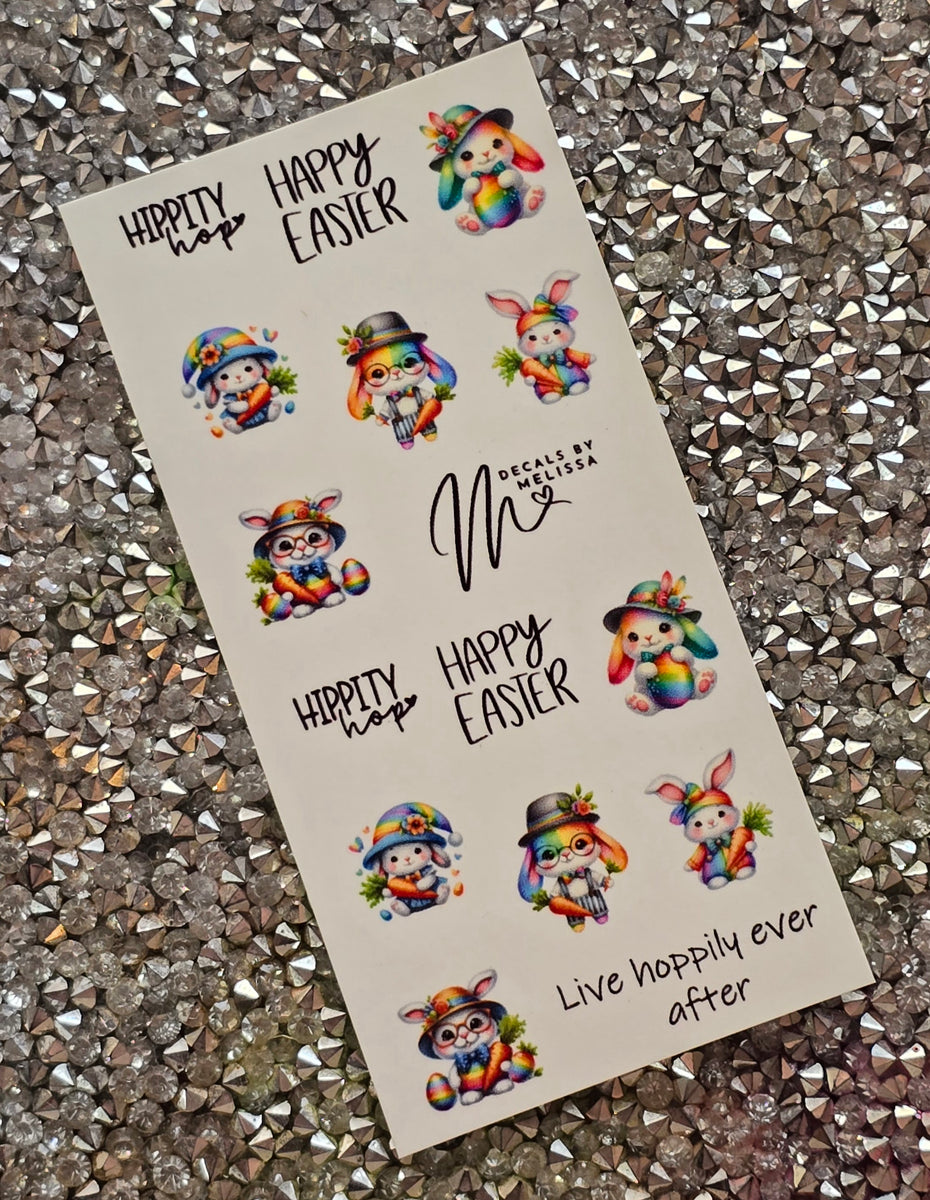 HIPPITY
hop
HAPPY
EASTER
DECALS BY
MELISSA
M
HIPPITY
hop
HAPPY
EASTER
Live hoppily ever
after